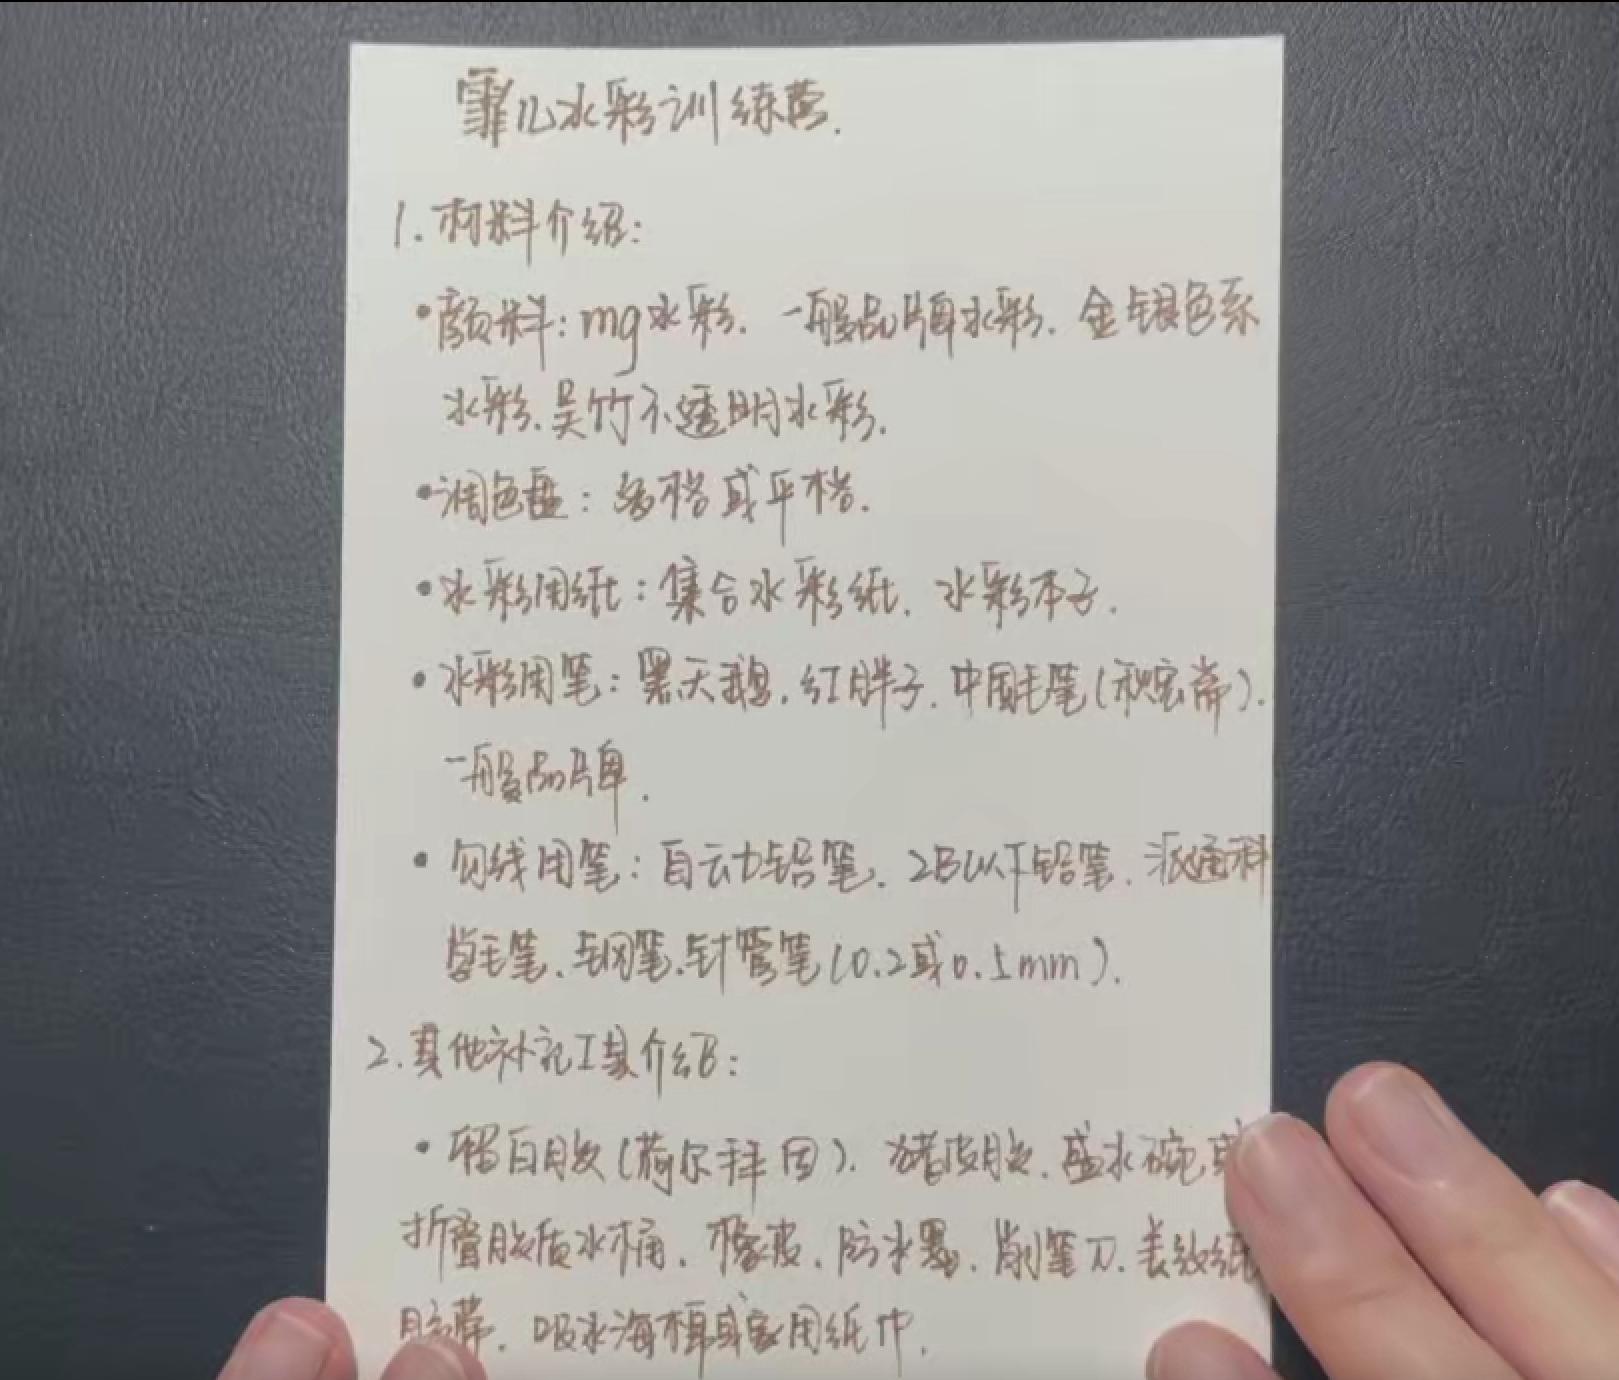 霏儿水彩训练营.
1. 材料介绍:
•颜料: mg水彩. 一般品牌水彩. 金银色系
水彩. 吴竹不透明水彩.
•调色盘: 多格或平格.
•水彩用纸: 集合水彩纸. 水彩本子.
•水彩用笔: 黑天鹅. 红胖子. 中国毛笔(秋宏斋).
一般品牌.
•勾线用笔: 自动铅笔. 2B以下铅笔. 派通科
学毛笔. 钢笔. 针管笔(0.2或0.5mm).
2. 其他补充工具介绍:
•留白胶(荷尔拜因). 猪皮胶. 盛水碗或
折叠胶质水桶. 橡皮. 防水墨. 削笔刀. 美纹纸
胶带. 吸水海棉或家用纸巾.